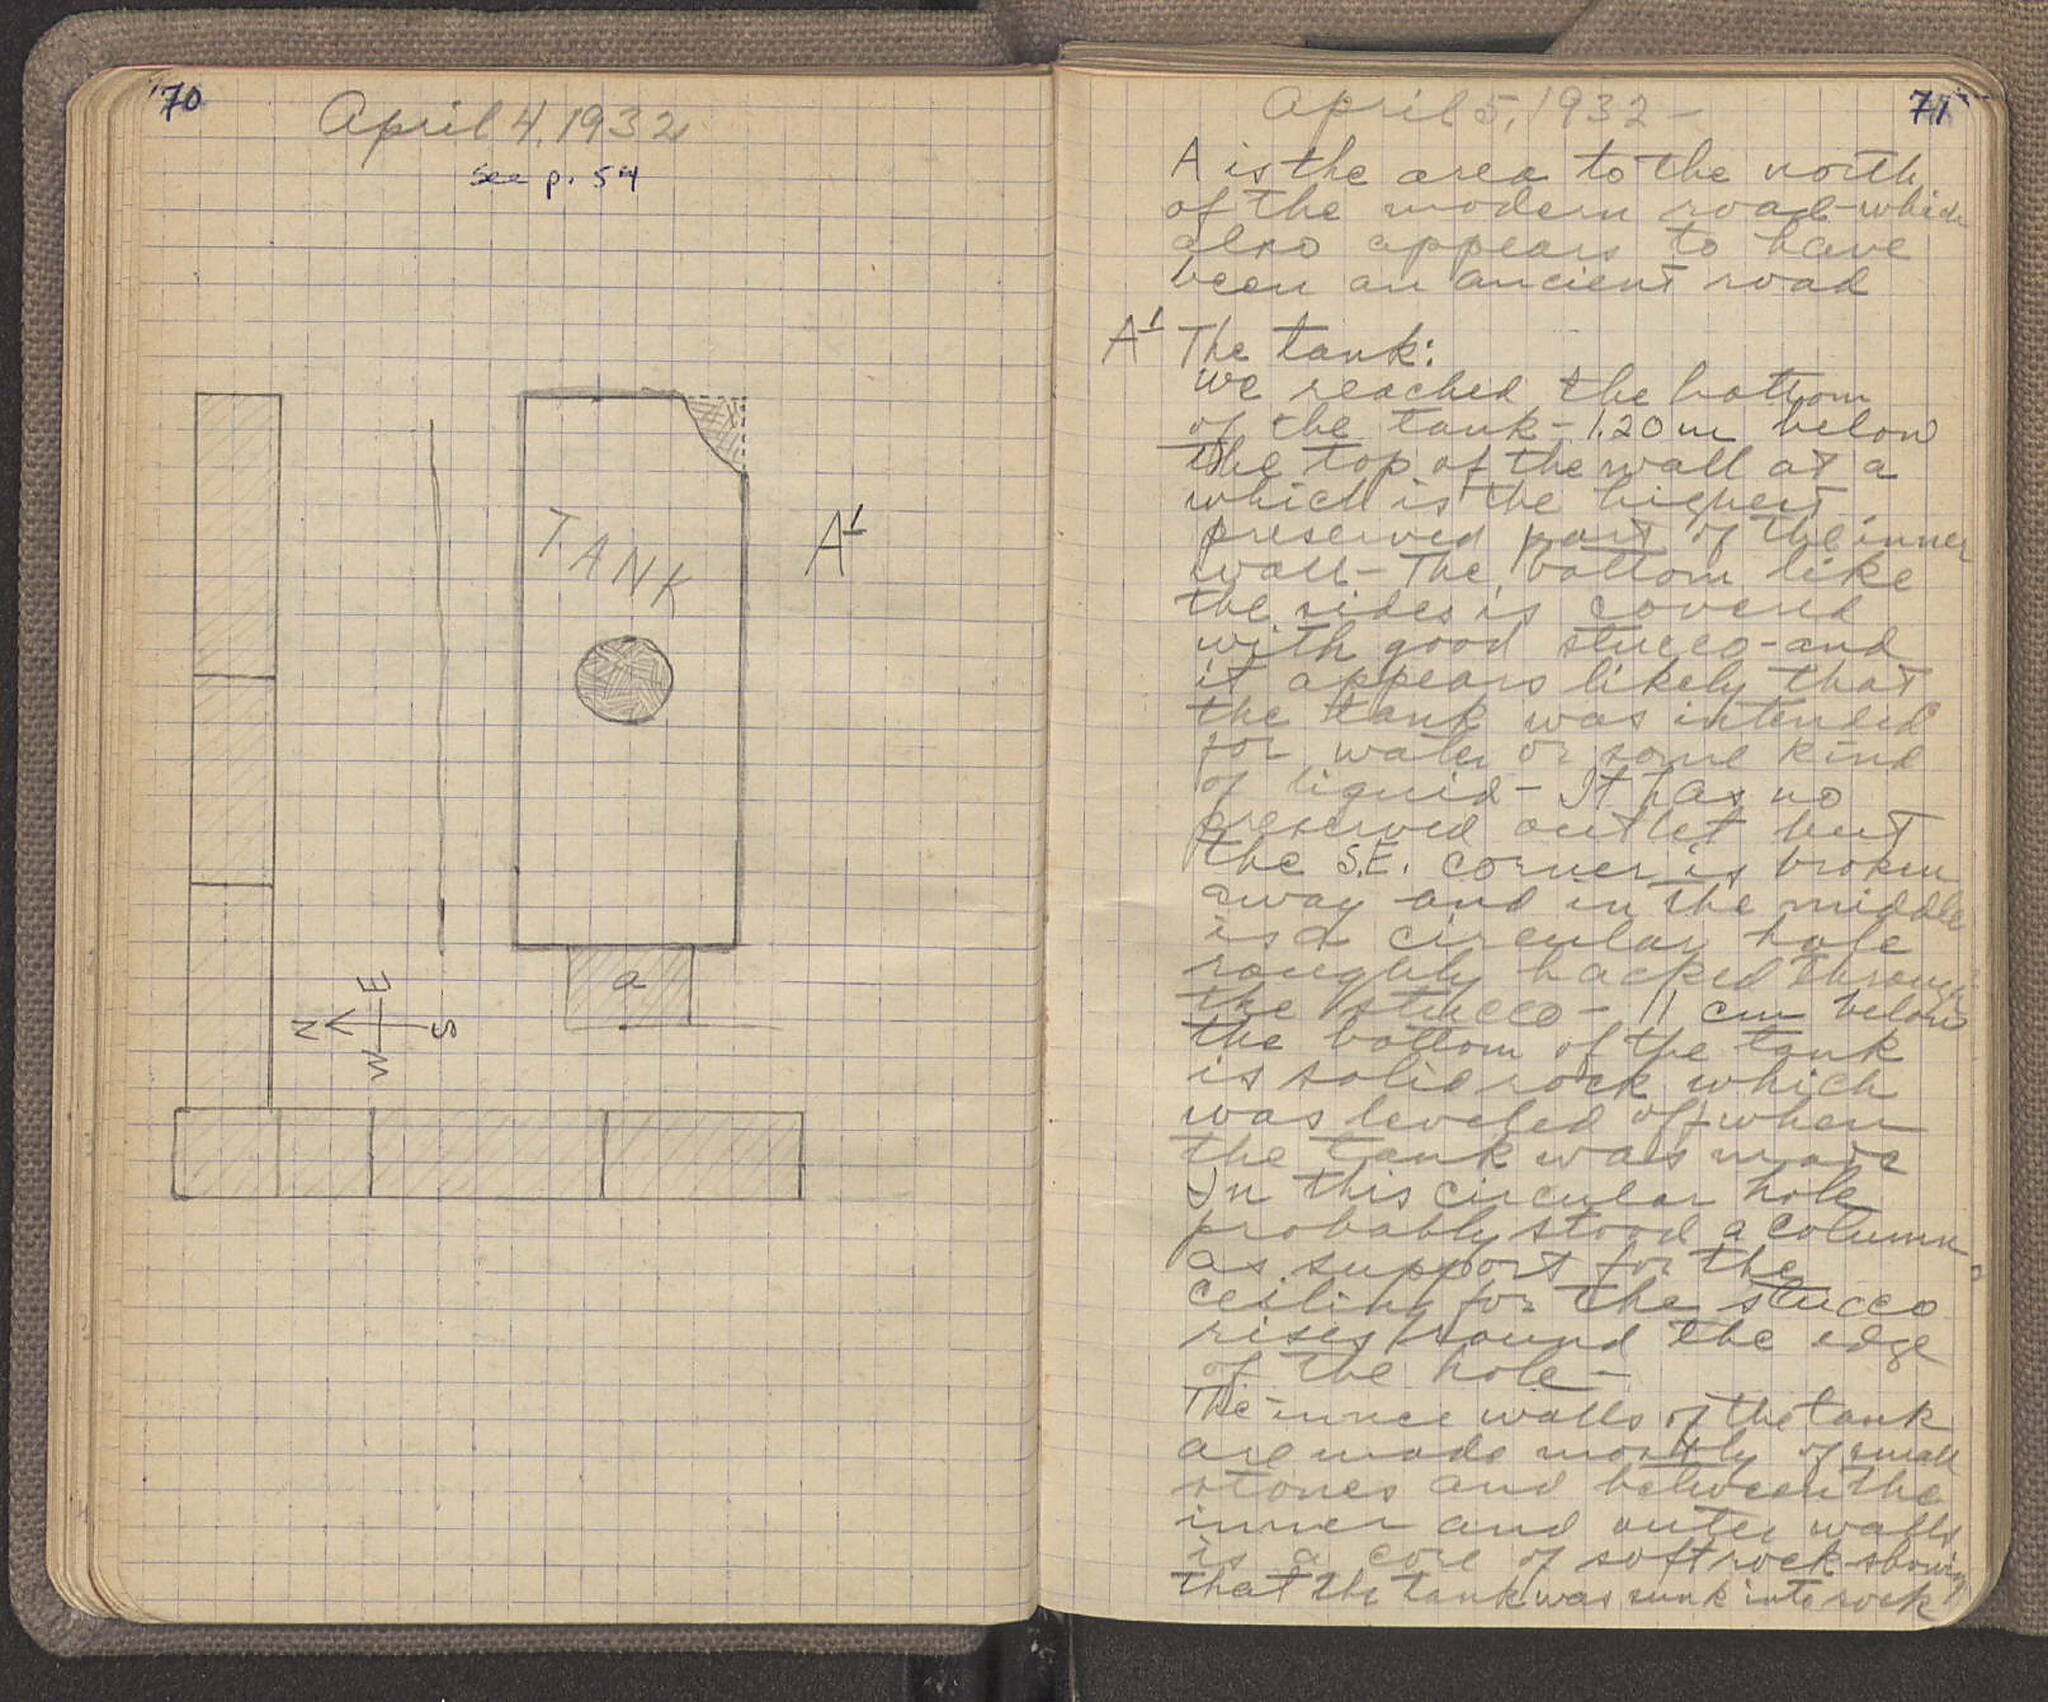 70
April 4, 1932
See p. 54
TANK
A¹
a
E
N
S
W
71
April 5, 1932 -
A is the area to the north
of the modern road - which
also appears to have
been an ancient road
A¹ The tank:
we reached the bottom
of the tank - 1.20 m below
the top of the wall at a
which is the highest
preserved part of the inner
wall - The bottom like
the sides is covered
with good stucco - and
it appears likely that
the tank was intended
for water or some kind
of liquid - It has no
preserved outlet but
the S.E. corner is broken
away and in the middle
is a circular hole
roughly hacked through
the stucco - 11 cm below
the bottom of the tank
is solid rock which
was leveled off when
the tank was made
In this circular hole
probably stood a column
as support for the
ceiling for the stucco
rises round the edge
of the hole -
The inner walls of the tank
are made mostly of small
stones and between the
inner and outer walls
is a core of soft rock showing
that the tank was sunk into rock